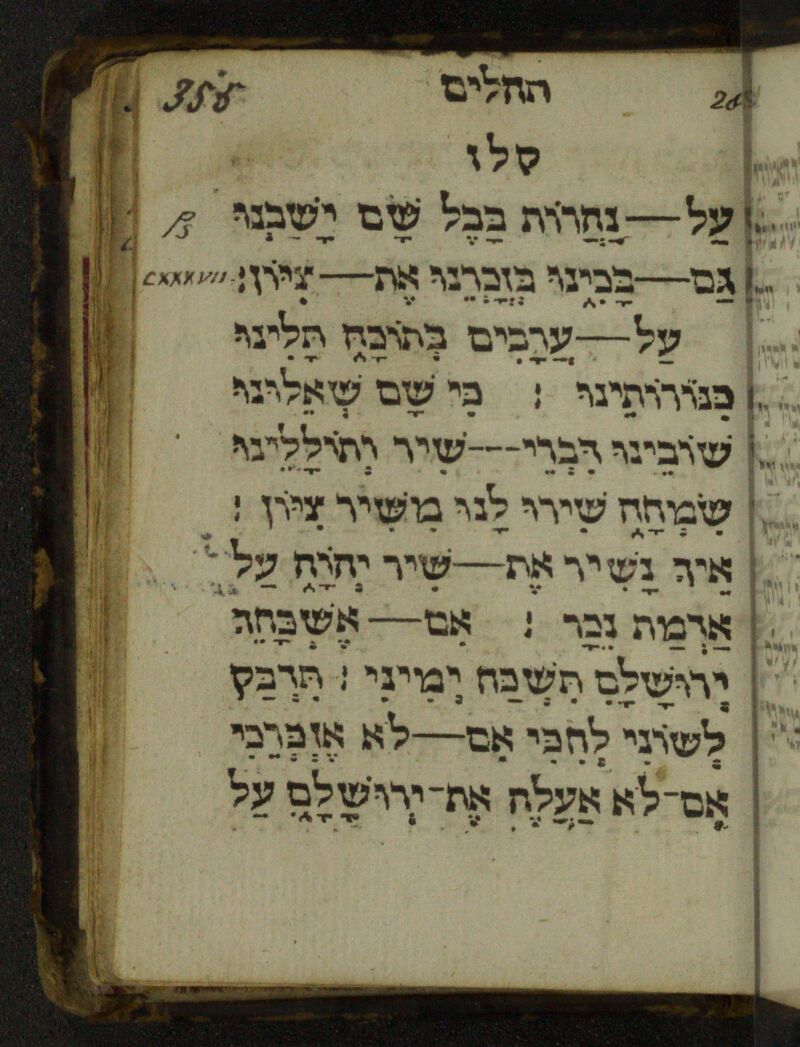 358 תהלים
קלז
על—נהרות בבל שם ישבנו
גם—בכינו בזכרנו את—ציון: CXXXVII.
על—ערבים בתוכה תלינו
כנורותינו : כי שם שאלונו
שובינו דברי—שיר ותוללינו
שמחה שירו לנו משיר ציון :
איך נשיר את—שיר יהוה על
אדמת נכר : אם—אשכחך
ירושלם תשכח ימיני : תדבק
לשוני לחכי אם—לא אזכרכי
אם־לא אעלה את־ירושלם על